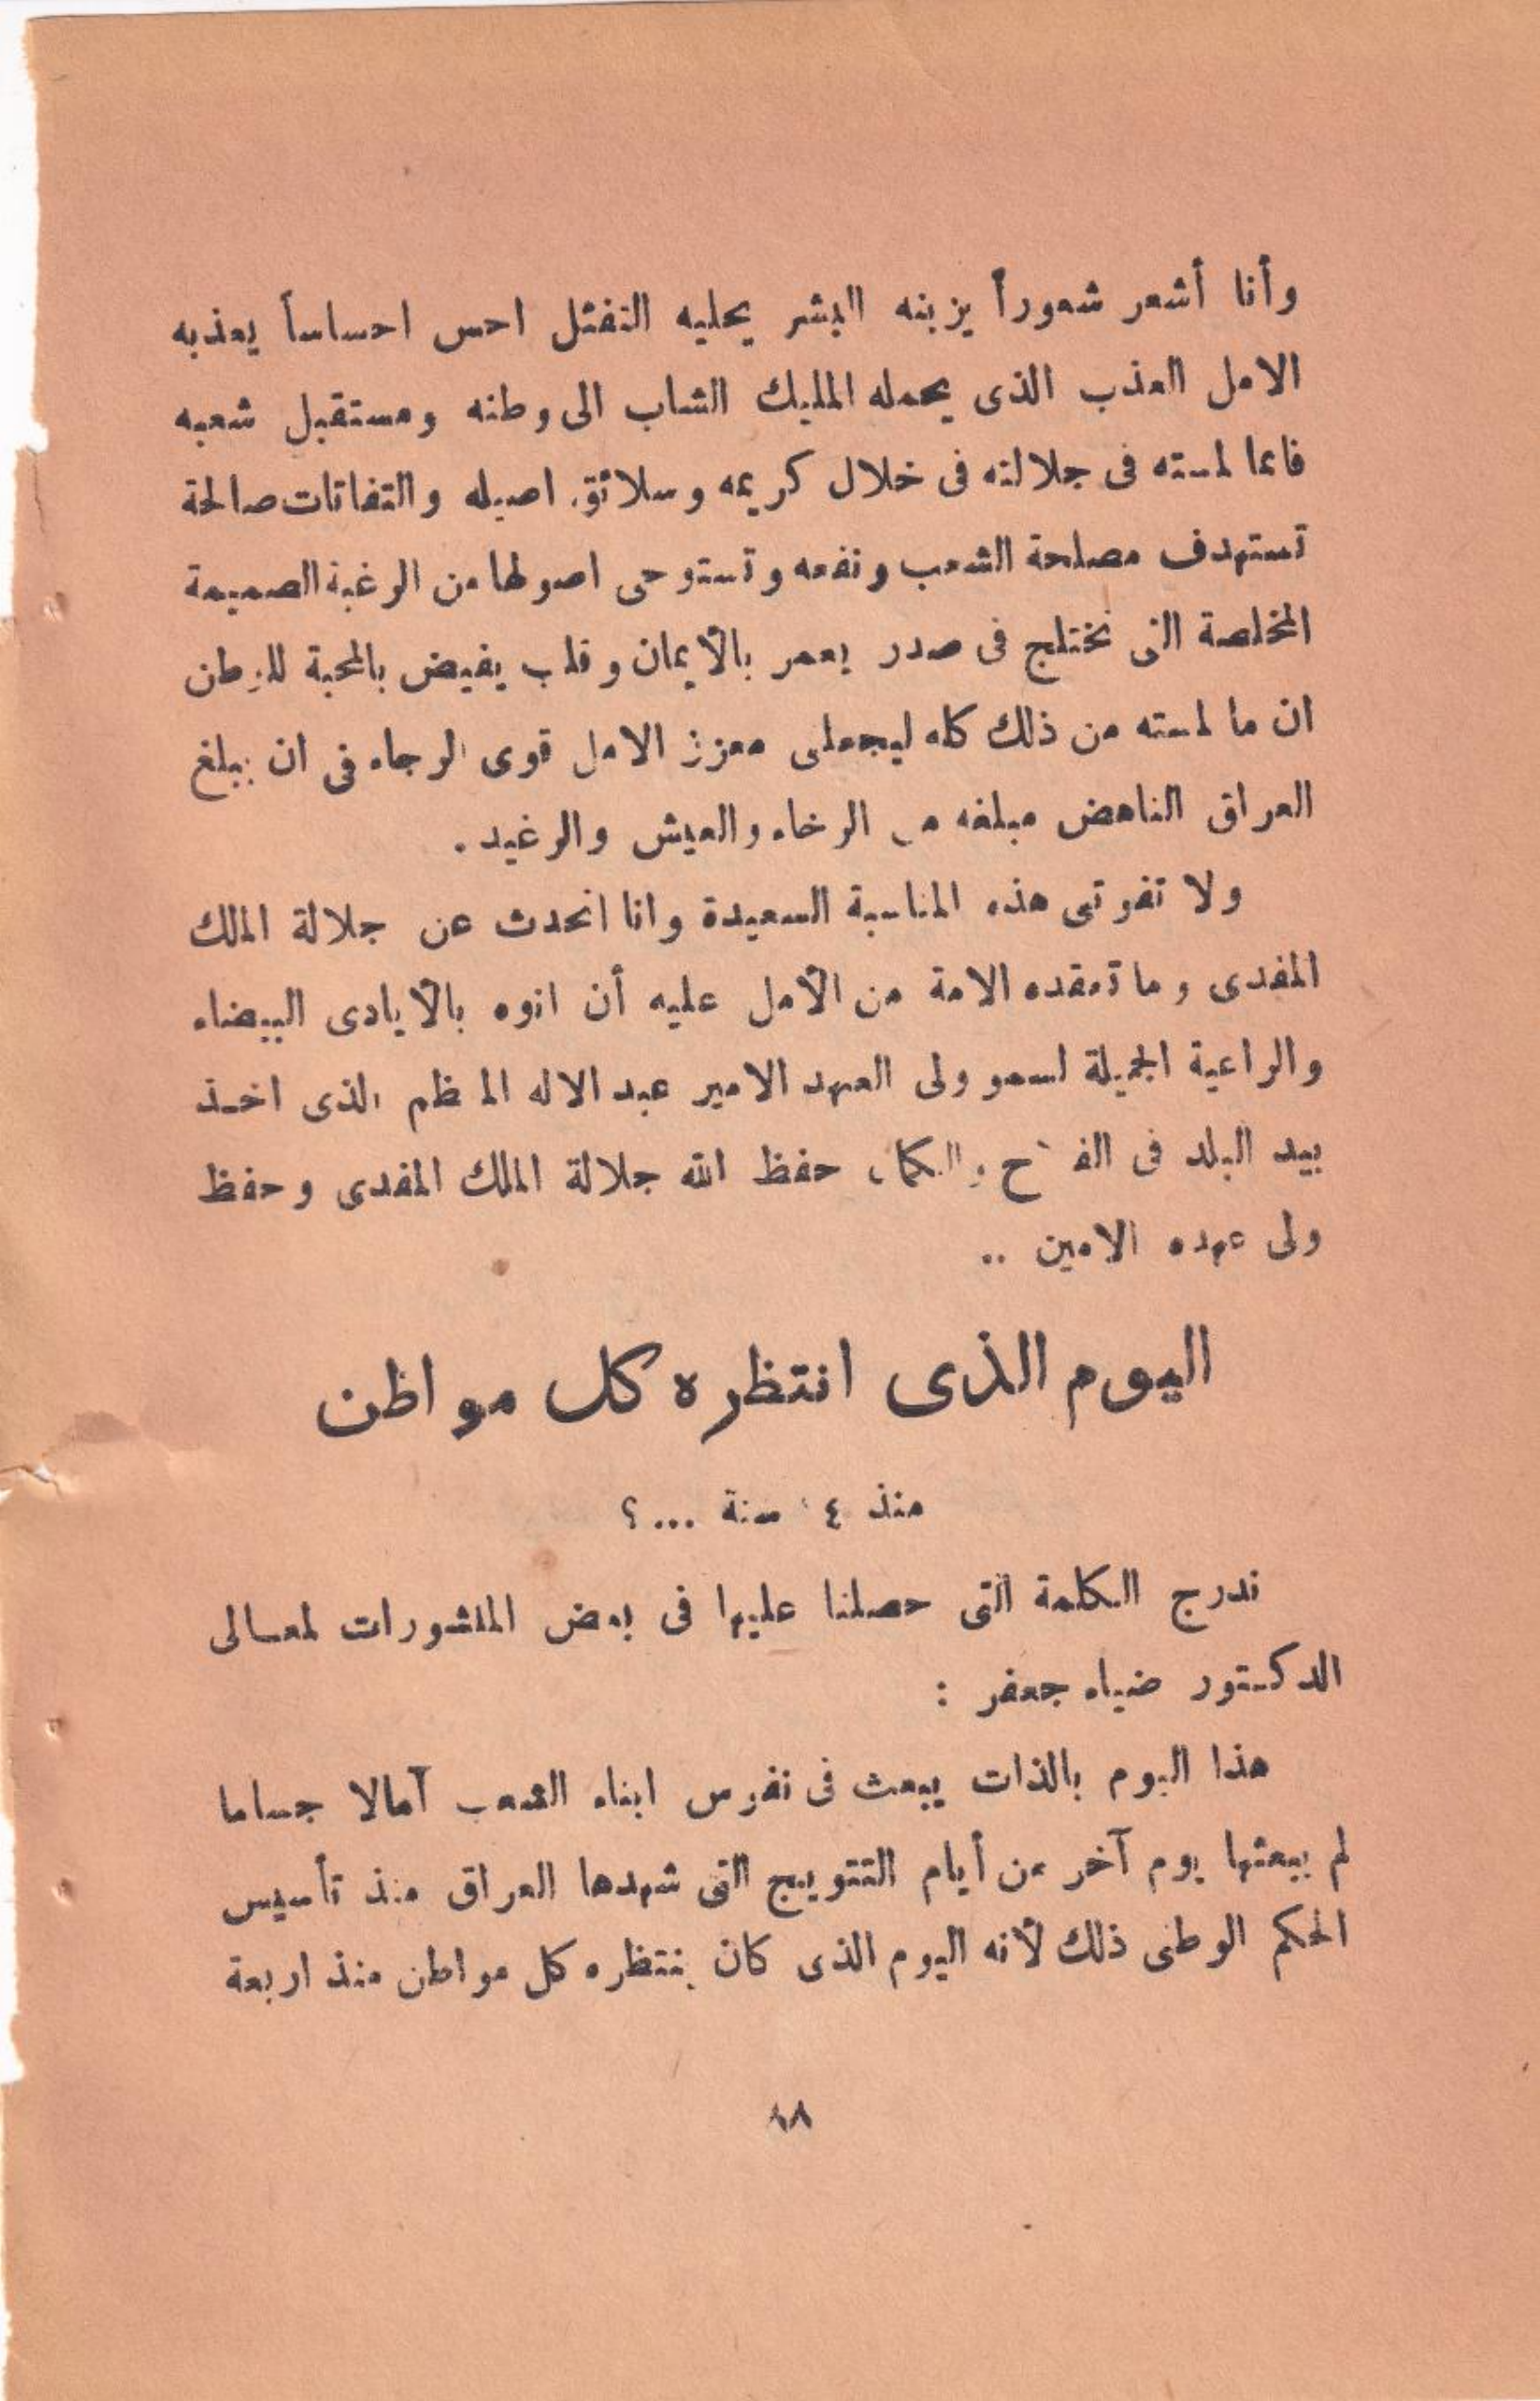 وأنا أشعر شعوراً يزينه البشر يحليه التفئل احس احساساً يعذبه
الامل العذب الذى يحمله المليك الشاب الى وطنه ومستقبل شعبه
فانما لمسته فى جلالته فى خلال كريمه وسلائق اصيله والتفاتات صالحة
تستهدف مصلحة الشعب ونفعه وتستوحى اصولها من الرغبة الصميمة
المخلصة التى تختلج فى صدر يعمر بالأيمان وقلب يفيض بالمحبة للوطن
ان ما لمسته من ذلك كله ليجعلنى معزز الامل قوى الرجاء فى ان يبلغ
العراق الناهض مبلغه من الرخاء والعيش والرغيد .
ولا تفوتنى هذه المناسبة السعيدة وانا اتحدث عن جلالة الملك
المفدى وما تعقده الامة من الأمل عليه أن انوه بالأيادى البيضاء
والراعية الجميلة لسمو ولى العهد الامير عبد الاله المعظم الذى اخذ
بيد البلد فى حفظ الله جلالة الملك المفدى وحفظ
ولى عهده الامين ..
اليوم الذى انتظره كل مواظن
منذ ٤ سنة ...؟
ندرج الكلمة التى حصلنا عليها فى بعض المنشورات لمعالى
الدكتور ضياء جعفر :
هذا اليوم بالذات يبعث فى نفوس ابناء الشعب آمالا جساما
لم يبعثها يوم آخر من أيام التتويج التى شهدها العراق منذ تأسيس
الحكم الوطنى ذلك لأنه اليوم الذى كان ينتظره كل مواطن منذ اربعة